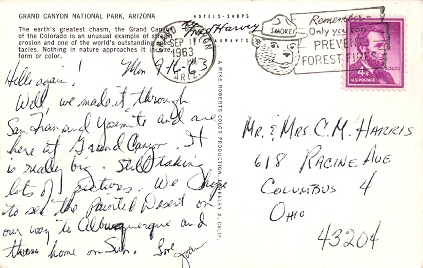 GRAND CANYON NATIONAL PARK, ARIZONA
The earth's greatest chasm, the Grand Canyon
of the Colorado is an unusual example of stream
erosion and one of the world's outstanding spec-
tacles. Nothing in nature approaches it in
form or color.
HOTELS-SHOPS
Fred Harvey
RESTAURANTS
SEP
1963
ARIZ.
SMOKEY
Remember-
Only you can
PREVENT
FOREST FIRES
4¢
LINCOLN
A MIKE ROBERTS COLOR PRODUCTION, BERKELEY 2, CALIF.
Mon 9-16-63
Hello again!
Well, we made it through
San Fran and Yosemite and are
here at Grand Canyon. It
is really big. Still taking
lots of pictures. We hope
to see the Painted Desert on
our way to Albuquerque and
then home on Sun. Love
Mr. & Mrs. C. M. Harris
618 Racine Ave
Columbus 4
Ohio
43204